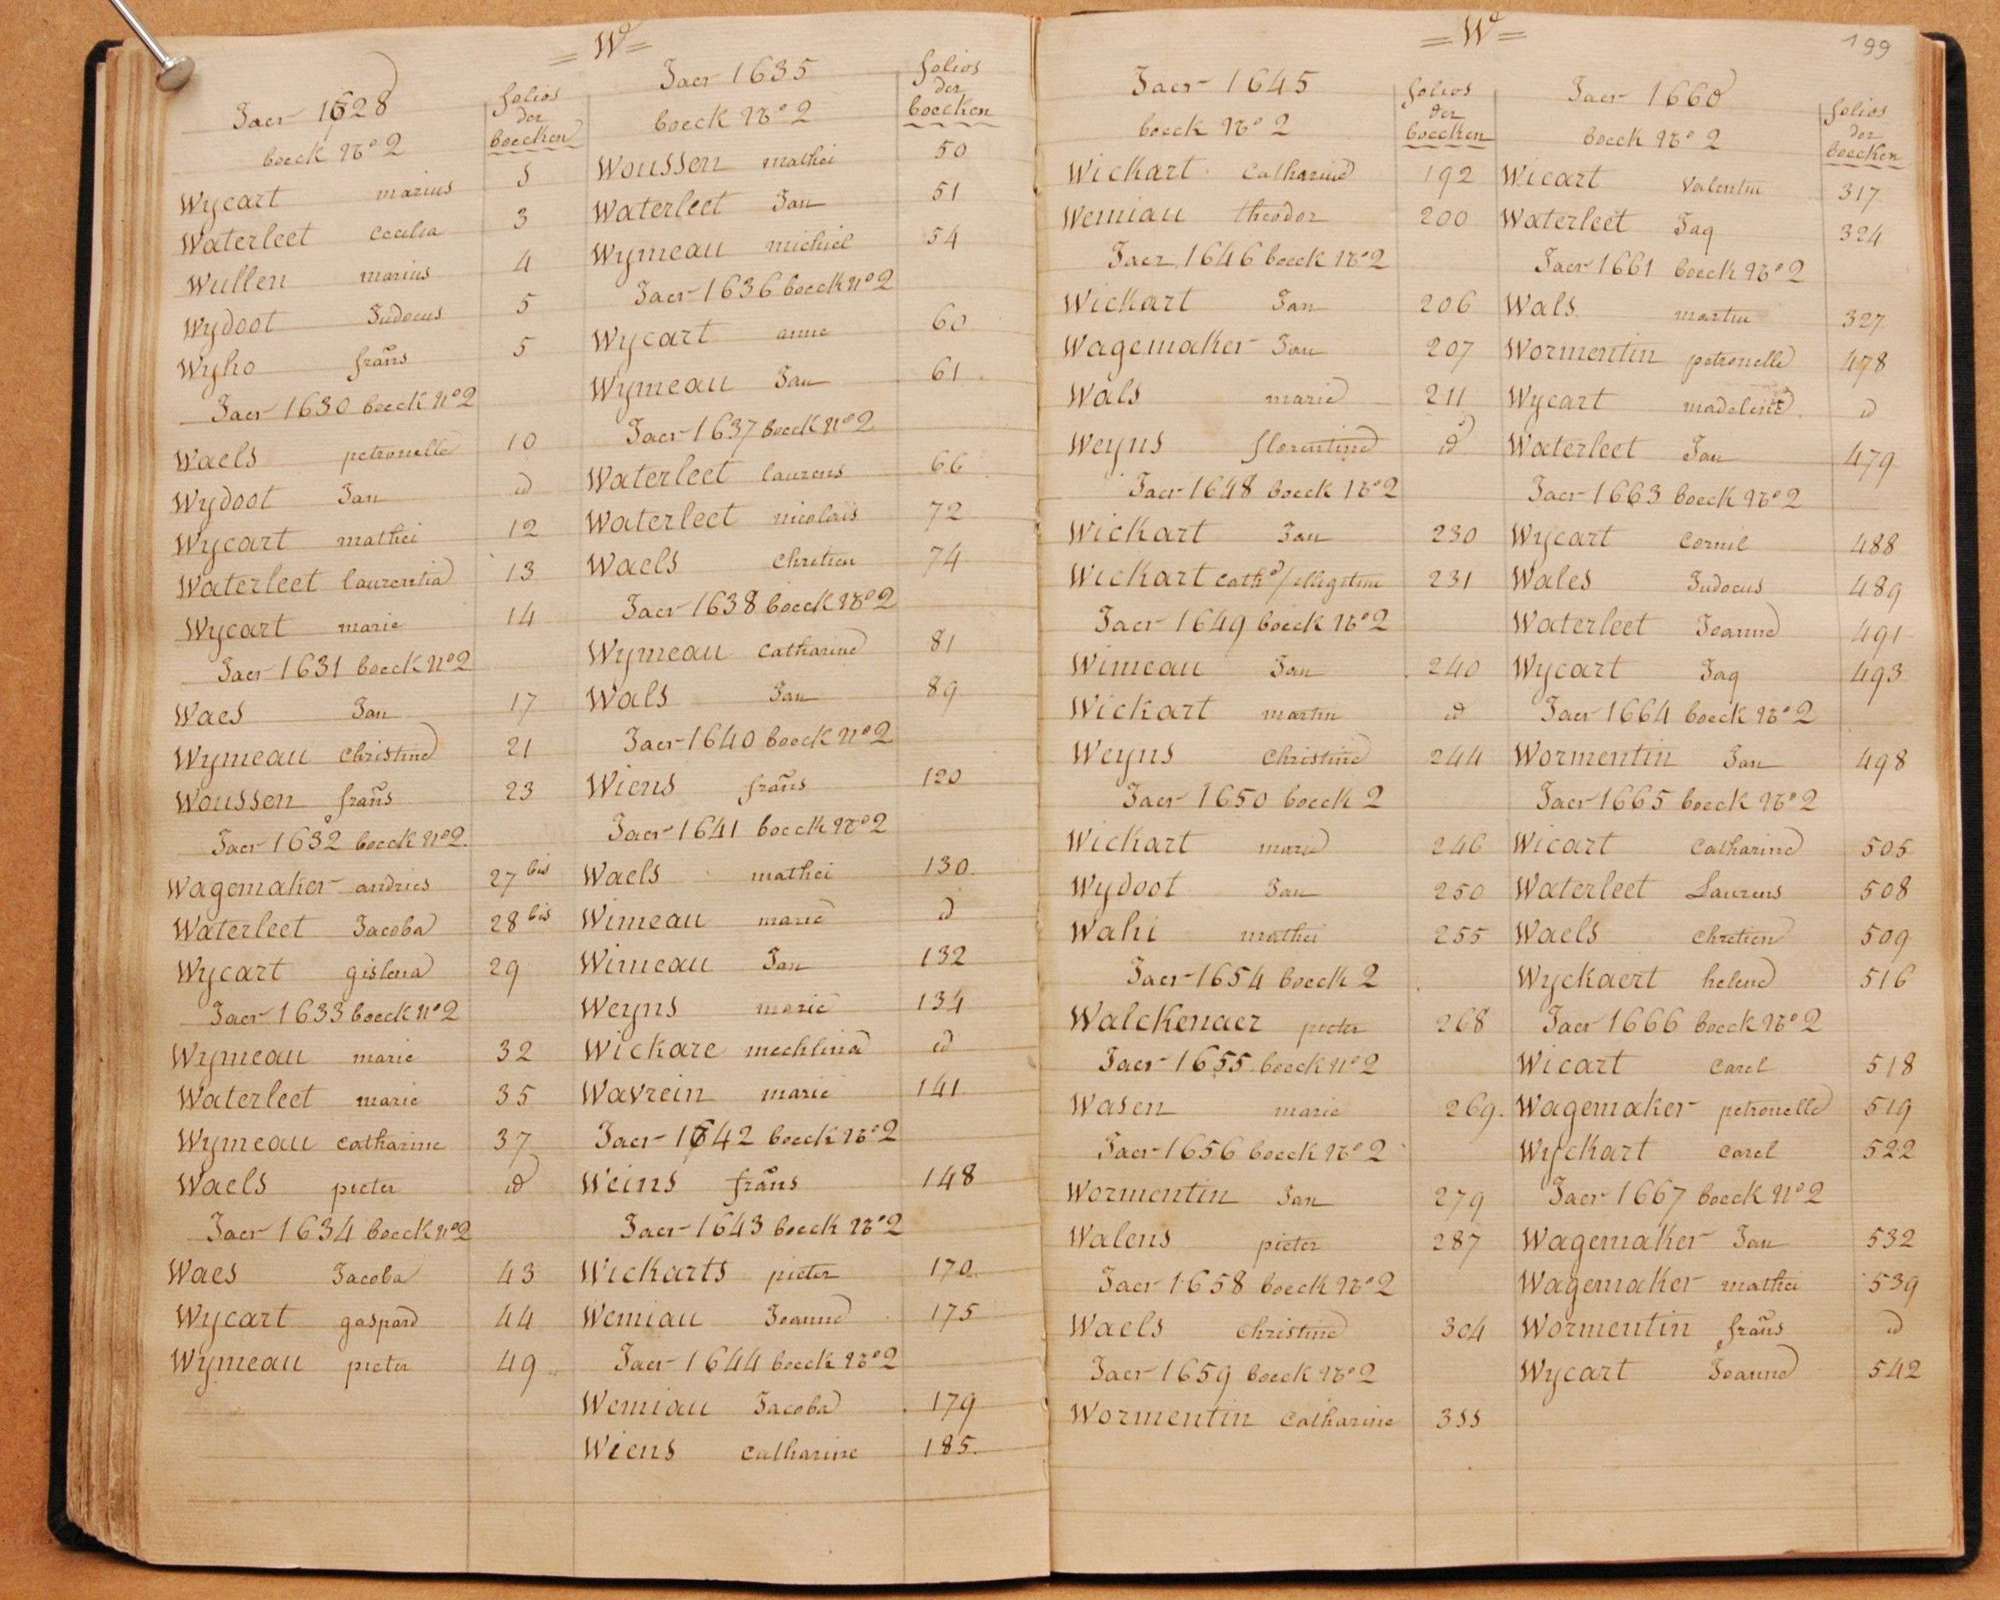 = W =
Jaer 1628
folios
der
boecken
boeck No 2
Wycart marius 5
Waterleet Cecilia 3
Wullen marius 4
Wydoot Judocus 5
Wyho frans 5
Jaer 1630 boeck No 2
Waels petronelle 10
Wydoot Jan id
Wycart mathei 12
Waterleet laurentia 13
Wycart marie 14
Jaer 1631 boeck No 2
Waes Jan 17
Wymeau Christine 21
Woussen frans 23
Jaer 1632 boeck No 2.
Wagemaker andries 27 bis
Waterleet Jacoba 28 bis
Wycart gislena 29
Jaer 1633 boeck No 2
Wymeau marie 32
Waterleet marie 35
Wymeau Catharine 37
Waels pieter id
Jaer 1634 boeck No 2
Waes Jacoba 43
Wycart gaspard 44
Wymeau pieter 49
Jaer 1635
folios
der
boecken
boeck No 2
Woussen mathei 50
Waterleet Jan 51
Wymeau michiel 54
Jaer 1636 boeck No 2
Wycart anne 60
Wymeau Jan 61
Jaer 1637 boeck No 2
Waterleet laurens 66
Waterleet nicolais 72
Waels Chretien 74
Jaer 1638 boeck No 2
Wymeau Catharine 81
Wals Jan 89
Jaer 1640 boeck No 2
Wiens frans 120
Jaer 1641 boeck No 2
Waels mathei 130
Wimeau marie id
Wimeau Jan 132
Weyns marie 134
Wickare mechlina id
Wavrein marie 141
Jaer 1642 boeck No 2
Weins frans 148
Jaer 1643 boeck No 2
Wickarts pieter 170
Wemiau Jeanne 175
Jaer 1644 boeck No 2
Wemiau Jacoba 179
Wiens Catharine 185.
= W =
199
Jaer 1645
folios
der
boecken
boeck No 2
Wickart Catharine 192
Wemiau theodor 200
Jaer 1646 boeck No 2
Wickart Jan 206
Wagemaker Jan 207
Wals marie 211
Weyns florentine id
Jaer 1648 boeck No 2
Wickart Jan 230
Wickart cathe illigitim 231
Jaer 1649 boeck No 2
Wimeau Jan 240
Wickart martin id
Weyns Christine 244
Jaer 1650 boeck 2
Wickart marie 246
Wydoot Jan 250
Wahi mathei 255
Jaer 1654 boeck 2
Walckenaer pieter 268
Jaer 1655 boeck No 2
Wasen marie 269.
Jaer 1656 boeck No 2
Wormentin Jan 279
Walens pieter 287
Jaer 1658 boeck No 2
Waels Christine 304
Jaer 1659 boeck No 2
Wormentin Catharine 355
Jaer 1660
folios
der
boecken
boeck No 2
Wicart Valentin 317
Waterleet Jaq 324
Jaer 1661 boeck No 2
Wals martin 327
Wormentin petronelle 478
Wycart madeleine id
Waterleet Jan 479
Jaer 1663 boeck No 2
Wycart Cornil 488
Wales Judocus 489
Waterleet Jeanne 491
Wycart Jaq 493
Jaer 1664 boeck No 2
Wormentin Jan 498
Jaer 1665 boeck No 2
Wicart Catharine 505
Waterleet Laurens 508
Waels Chretien 509
Wyckaert helene 516
Jaer 1666 boeck No 2
Wicart Carel 518
Wagemaker petronelle 519
Wyckart Carel 522
Jaer 1667 boeck No 2
Wagemaker Jan 532
Wagemaker mathei 539
Wormentin frans id
Wycart Jeanne 542